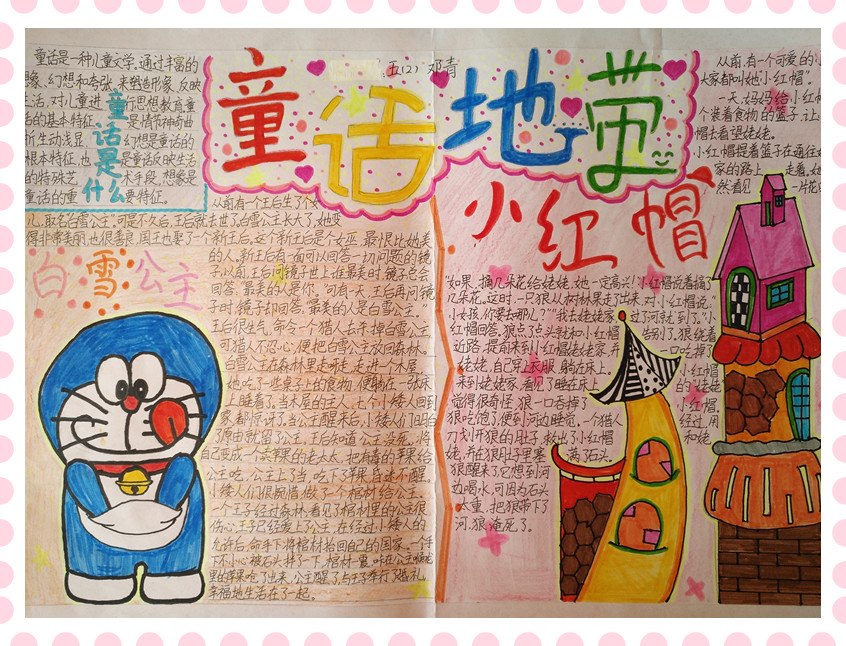 五(2) 邓青
童话地带
童话是一种儿童文学,通过丰富的
想象、幻想和夸张来塑造形象,反映
生活,对儿童进行思想教育。童
话的基本特征。是情节神奇曲
折生动浅显。幻想是童话的
根本特征,也是童话反映生活
的特殊艺术手段。想象是
童话的重要特征。
童话是什么
白雪公主
从前有一个王后生了个女
儿,取名白雪公主。可是不久后,王后就去世了。白雪公主长大了,她变
得非常美丽,也很善良。国王也娶了一个新王后,这个新王后是个女巫,最恨比她美
的人。新王后有一面可以回答一切问题的镜
子。以前,王后问镜子世上谁最美时,镜子总会
回答:“最美的人是你。”可有一天,王后再问镜
子时,镜子却回答:“最美的人是白雪公主。”
王后很生气,命令一个猎人去杀掉白雪公主。
可猎人不忍心,便把白雪公主放回森林。
白雪公主在森林里走呀走,走进一个木屋,
她吃了一些桌子上的食物,便躺在一张床
上睡着了。当木屋的主人,七个小矮人回到
家,都惊讶了。当公主醒来后,小矮人们且问
了原由就留了公主。王后知道公主没死,将
自己变成一个卖苹果的老太太,把有毒的苹果给
公主吃。公主上了当,吃下苹果,昏迷不醒。
小矮人们很惋惜,做了个棺材给公主。
一个王子经过森林,看见了棺材里的公主很
伤心,王子已经爱上公主,在经过小矮人的
允许后,命手下将棺材抬回自己的国家。一个手
下不小心被石头绊了一下,棺材一震,
里的苹果吃了出来。公主醒了,与王子举行了婚礼,
幸福地生活在了一起。
小红帽
从前,有一个可爱的小
大家都叫她“小红帽”。
一天,妈妈给小红帽
个装着食物的篮子,让小
帽去看望姥姥。
小红帽提着篮子在通往
家的路上走着,她
然看见一片花
“如果摘几朵花给姥姥,她一定高兴!”小红帽说着摘了
几朵花。这时,一只狼从树林里走了出来,对小红帽说:“
小女孩,你要去哪儿?”“我去姥姥家,过了河就到了。”小
红帽回答。狼点了点头就和小红帽告别了。狼绕着
近路,提前来到小红帽姥姥家,并一口吃掉了
姥姥,自己穿上衣服,躺在床上。小红帽
来到姥姥家,看见了睡在床上的“姥姥”
觉得很奇怪,狼一口吞掉了小红帽。
狼吃饱了,便到河边睡觉。一个猎人经过,用
刀划开狼的肚子,救出了小红帽和姥
姥,并在狼肚子里塞满了石头。
狼醒来了,它想到河
边喝水,可因为石头
太重,把狼带下了
河,狼淹死了。